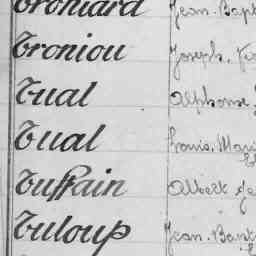 Troniard Jean. Bapt
Troniou Joseph. Fra
Tual Alphonse. J
Tual Louis. Mari
Tuffain Albert. Je
Tuloup Jean. Bapt